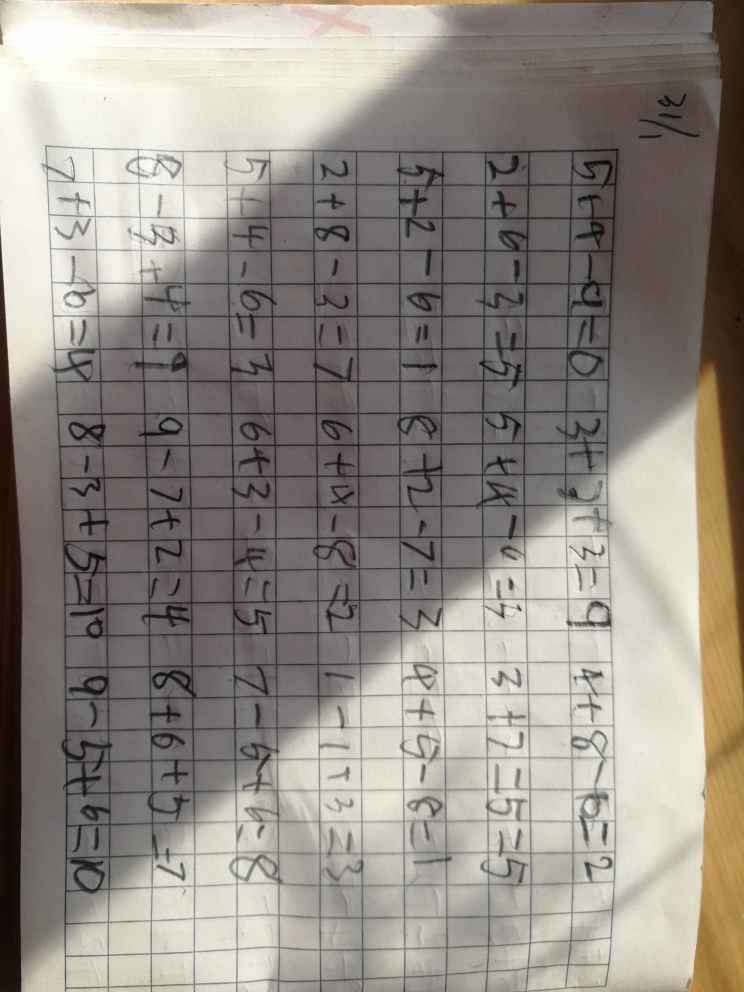 31/1
5+4-9=0 3+3+3=9 4+8-6=2
2+6-3=5 5+4-6=3 3+7=5=5
5+2-6=1 8+2-7=3 4+5-8=1
2+8-3=7 6+4-8=2 1-1+3=3
5+4-6=3 6+3-4=5 7-5+6=8
8-3+4=9 9-7+2=4 8+6+5=7
7+3-6=4 8-3+5=10 9-5+6=10